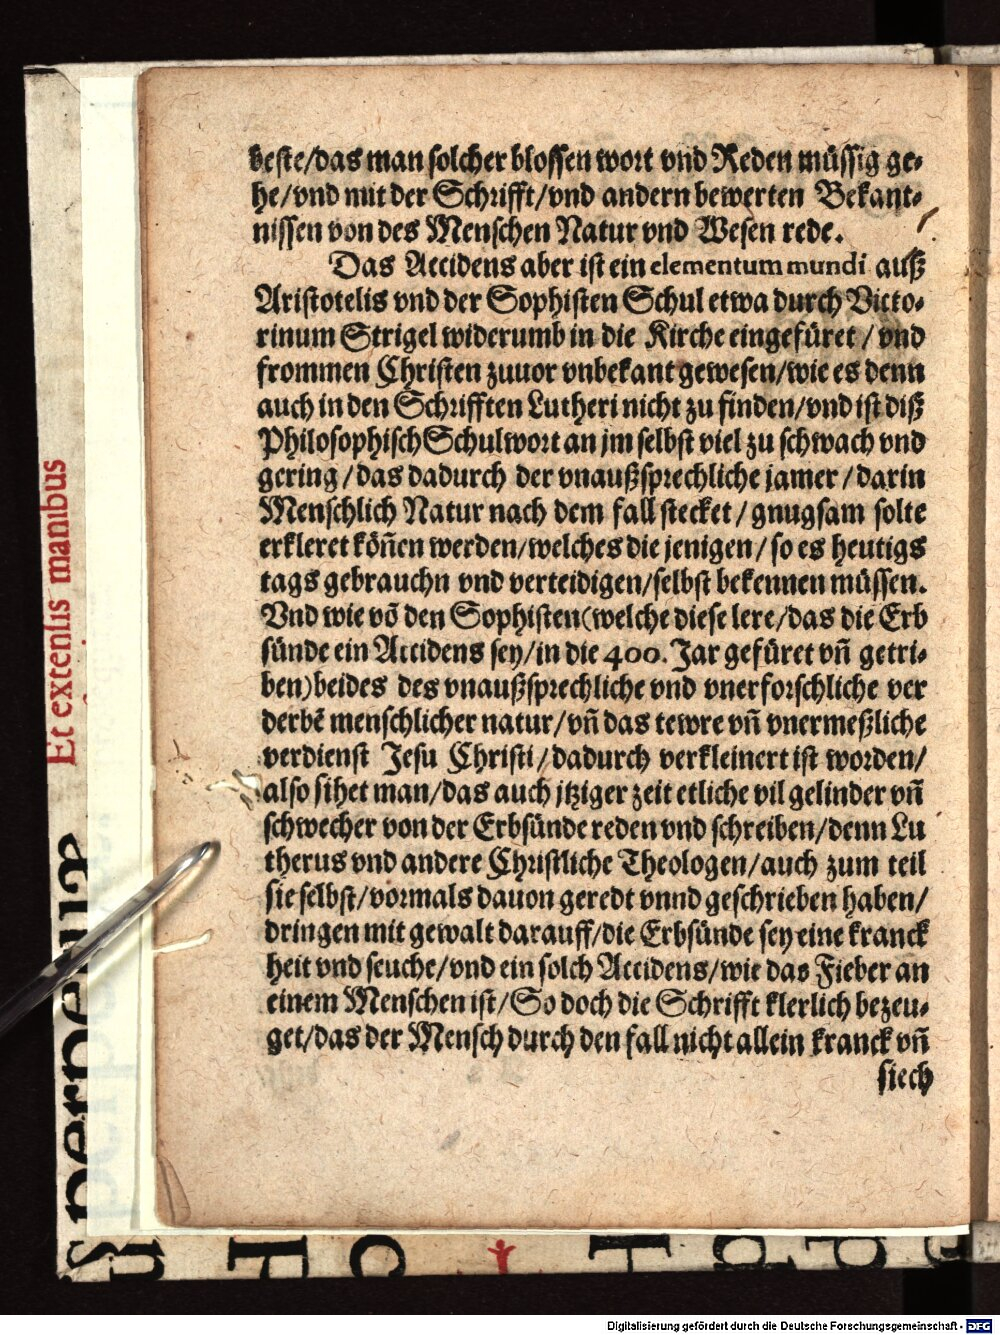 beste/das man solcher blossen wort vnd Reden müssig ge-
he/vnd mit der Schrifft/vnd andern bewerten Bekant-
nissen von des Menschen Natur vnd Wesen rede.
Das Accidens aber ist ein elementum mundi auß
Aristotelis vnd der Sophisten Schul etwa durch Victo-
rinum Strigel widerumb in die Kirche eingefüret / vnd
frommen Christen zuuor vnbekant gewesen/wie es denn
auch in den Schrifften Lutheri nicht zu finden/vnd ist diß
Philosophisch Schulwort an jm selbst viel zu schwach vnd
gering / das dadurch der vnaußsprechliche jamer / darin
Menschlich Natur nach dem fall stecket / gnugsam solte
erkleret köñen werden/welches die jenigen / so es heutigs
tags gebrauchn vnd verteidigen/selbst bekennen müssen.
Vnd wie võ den Sophisten(welche diese lere/das die Erb
sünde ein Accidens sey/in die 400. Jar gefüret vñ getri-
ben)beides des vnaußsprechliche vnd vnerforschliche ver
derbẽ menschlicher natur/vñ das tewre vñ vnermeßliche
verdienst Jesu Christi / dadurch verkleinert ist worden/
also sihet man/das auch jtziger zeit etliche vil gelinder vñ
schwecher von der Erbsünde reden vnd schreiben/denn Lu
therus vnd andere Christliche Theologen/auch zum teil
sie selbst/vormals dauon geredt vnnd geschrieben haben/
dringen mit gewalt darauff/die Erbsünde sey eine kranck
heit vnd seuche/vnd ein solch Accidens/wie das Fieber an
einem Menschen ist/So doch die Schrifft klerlich bezeu-
get/das der Mensch durch den fall nicht allein kranck vñ
siech
Et extensis manibus
Digitalisierung gefördert durch die Deutsche Forschungsgemeinschaft - DFG